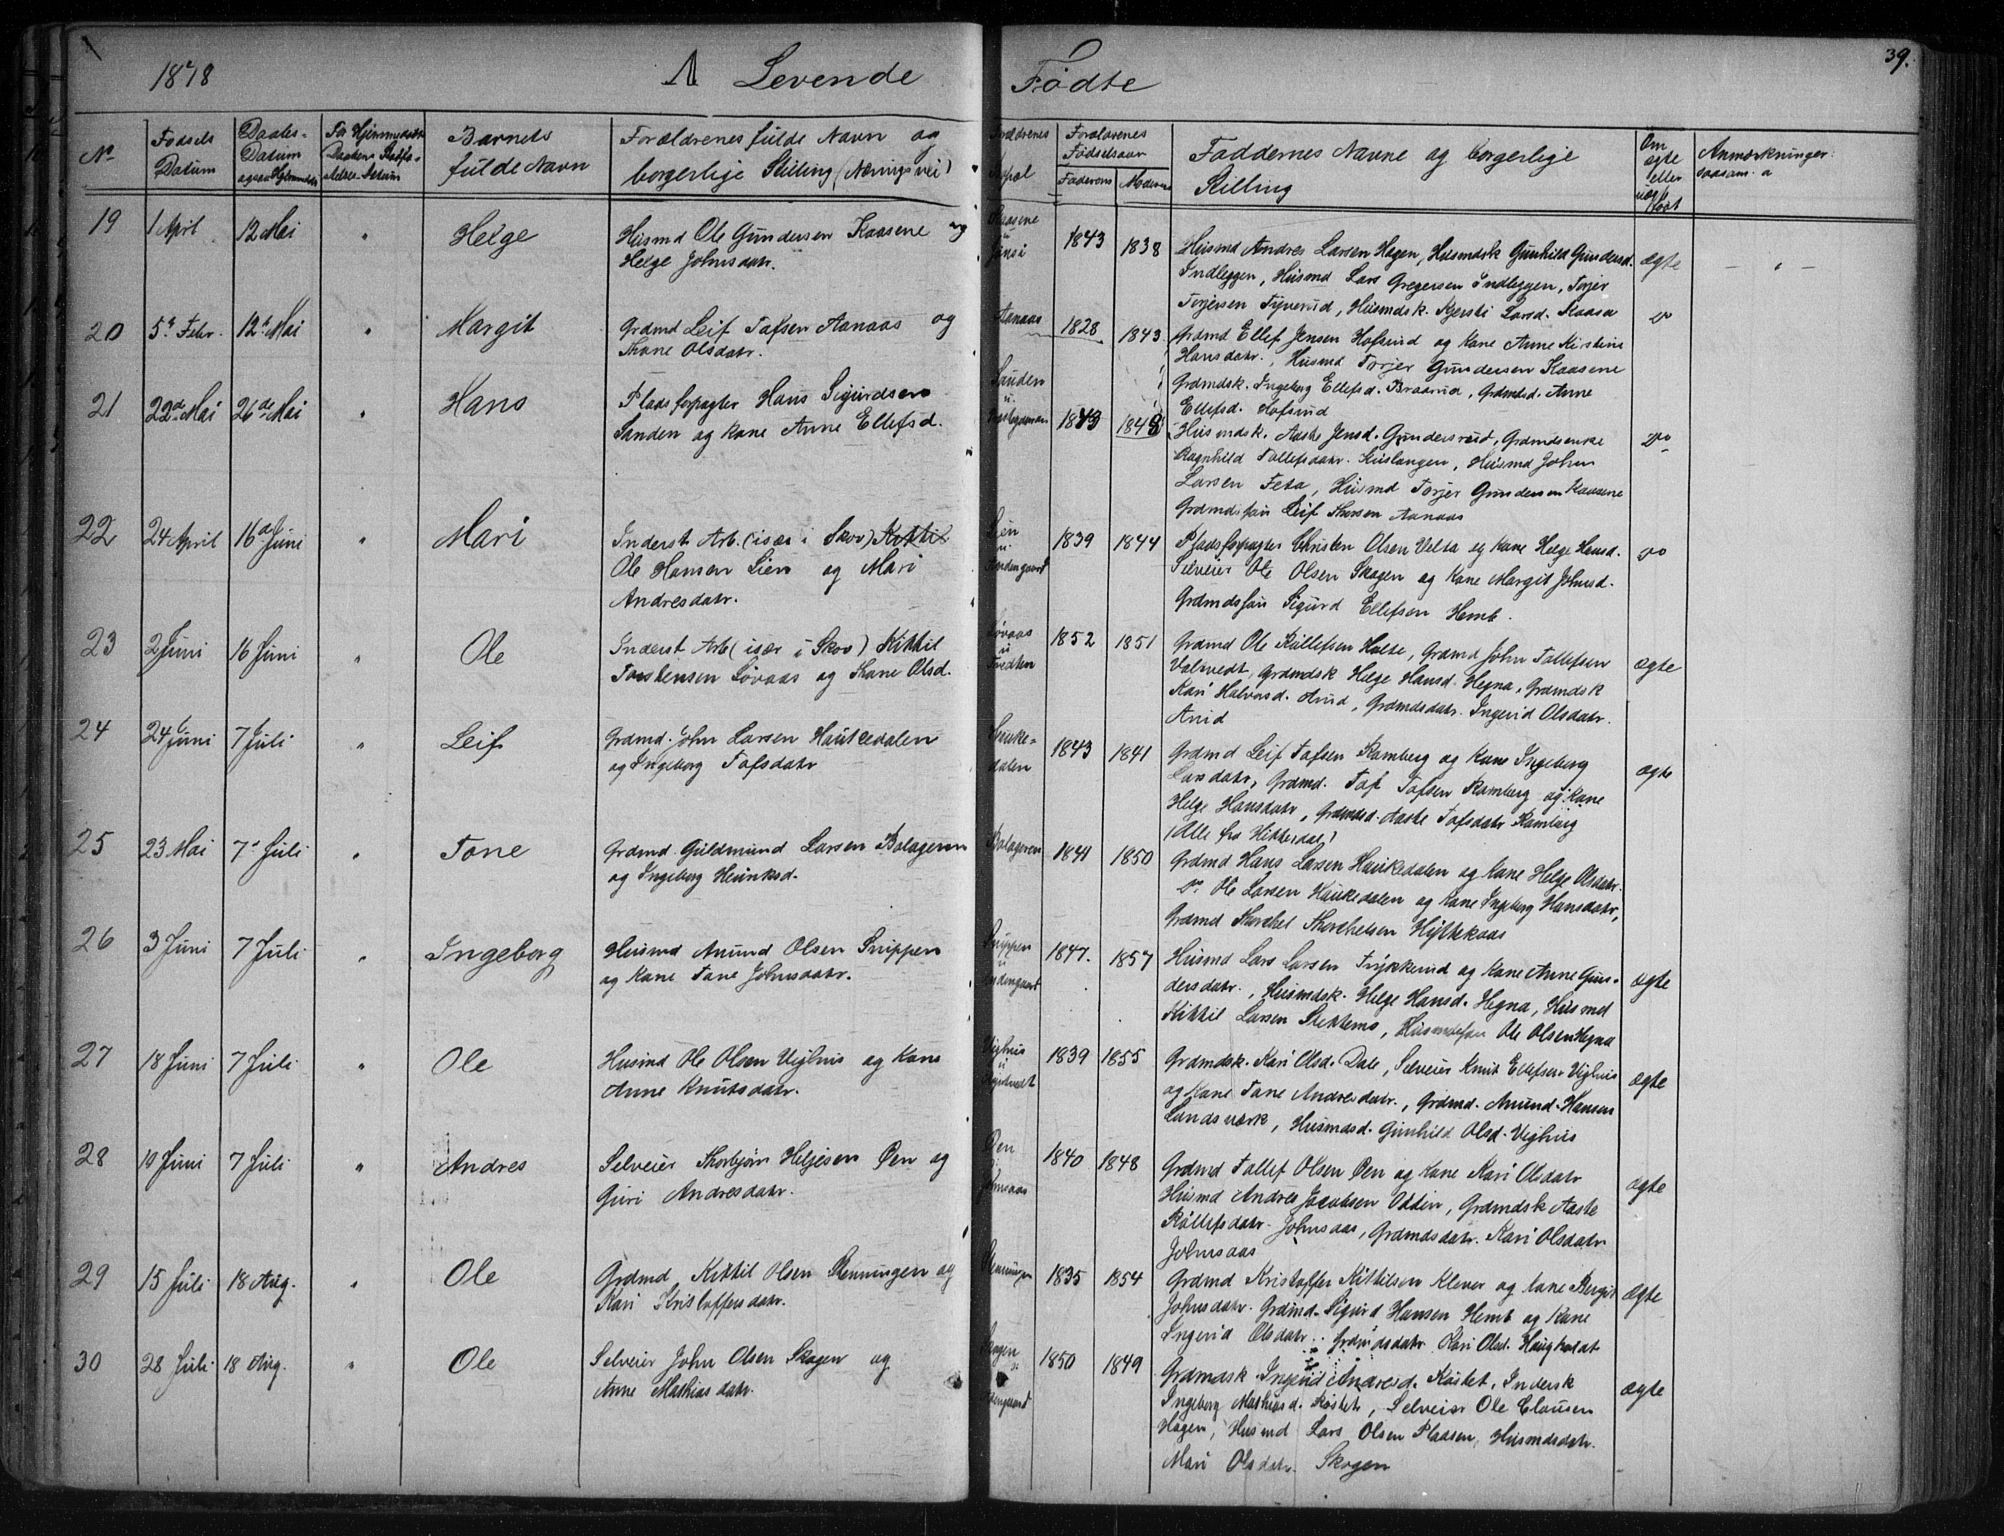 39.
1878 A Levende Fødte
No
Fødsels Datum
Daabs- Datum
Barnets fulde Navn
Forældrenes fulde Navn og borgerlige Stilling (Næringsvei)
Forældrenes Fødselsaar
Faderens Moderens
Faddernes Navne og borgerlige Stilling
Om ægte eller uægte født
Anmærkninger saasom a
19 1 April 12 Mai " Helge
Husmd Ole Gundersen Kaasene og
Helge Johnsdatr.
Kaasene
1843 1838
Husmd Andres Larsen Hagen, Husmdsk Gunhild Gundersd.
Indleggen, Husmd Lars Gregersen Indleggen, Torjer
Torjersen Tyverud, Husmdsk. Kjersti Larsd. Kaasa
ægte
- " -
20 5te Febr. 12te Mai " Margit
Grdmd Leif Tofsen Aanaas og
Thone Olsdatr.
Aanaas
1828 1843
Grdmd Ellef Jensen Hofsund og Kone Anne Kirstine
Hansdatr., Husmd Torjer Gundersen Kaasene
Grdmdsk. Ingeborg Ellefsd. Braarud, Grdmdsd. Anne
Ellefsd. Hofsund
do
21 22de Mai 26de Mai " Hans
Pladsforpagter Hans Sigurdsen
Sanden og Kone Anne Ellefsd.
Sanden
1843 1848
Husmdsk. Aaste Jensd. Gundersrud, Grdmdsenke
Ragnhild Tollefsdatr. Kuslangen, Husmd John
Larsen Feta, Husmd Torjer Gundersen Kaasene
Grdmdsføn Leif Thorsen Aanaas
do
22 24 April 16de Juni " Mari
Inderst Arb. (især i Skov) Kittil
Ole Hansen Lien og Mari
Andresdatr.
Lien
1839 1844
Pladsforpagter Christen Olsen Velta og Kone Helge Hansd.
Selveier Ole Olsen Skogen og Kone Margit Johnsd.
Grdmdsføn Sigurd Ellefsen Hemb.
do
23 2 Juni 16 Juni " Ole
Inderst Arb (især i Skov) Kittil
Torstensen Løvaas og Thone Olsd.
Løvaas
1852 1851
Grdmd Ole Rollefsen Holte, Grdmd John Tollefsen
Valsvedt, Grdmdsk Helge Hansd. Hegna, Grdmdsk
Kari Halvorsd. Arud, Grdmdsdatr. Ingerid Olsdatr.
Arud
ægte
24 24 Juni 7 Juli " Leif
Grdmd. John Larsen Haukedalen
og Ingeborg Tofsdatr
Haukedalen
1843 1841
Grdmd Leif Tofsen Ramberg og Kone Ingeborg
Larsdatr, Grdmd. Tof Tofsen Ramberg og Kone
Helge Hansdatr, Grdmdsd. Aaste Tofsdatr Ramberg
(Alle fra Hitterdal)
ægte
25 23 Mai 7de Juli " Tone
Grdmd. Guldmund Larsen Bolageren
og Ingeborg Henriksd.
Bolageren
1841 1850
Grdmd Hans Larsen Haukedalen og Kone Helge Olsdatr.
do Ole Larsen Haukedalen og Kone Ingeborg Hansdatr,
Grdmd Thorchel Thorchelsen Hyttekaas
26 3 Juni 7 Juli " Ingeborg
Husmd Anund Olsen Snippen
og Kone Tone Johnsdatr.
Snippen
1847. 1857
Husmd Lars Larsen Trykkerud og Kone Anne Gun-
dersdatr., Husmdsk. Helge Hansd. Hegna, Husmd
Kittil Larsen Slettemo, Husmdsføn Ole Olsen Hegna
ægte
27 18 Juni 7 Juli " Ole
Husmd Ole Olsen Vighus og Kone
Anne Knutsdatr.
Vighus
1839 1855
Grdmdsk. Kari Olsd. Dale, Selveier Knut Ellefsen Vighus
og Kone Tone Andresdatr., Grdmd. Anund Hansen
Landsværk, Husmdsd. Gunhild Olsd. Vighus
ægte
28 10 Juni 7 Juli " Andres
Selveier Thorbjørn Heljesen Øen og
Guri Andresdatr.
Øen
Johnsaas
1840 1848
Grdmd Tollef Olsen Øen og Kone Kari Olsdatr
Husmd Andres Jacobsen Odden, Grdmdsk Aaste
Rollefsdatr. Johnsaas, Grdmdsdatr. Kari Olsdatr
Johnsaas
ægte
29 15 Juli 18 Aug. " Ole
Grdmd Kittil Olsen Renningen og
Kari Kristoffersdatr.
1835 1854
Grdmd Kristoffer Kittilsen Klever og Kone Bergit
Johnsdatr. Grdmd. Sigurd Hansen Hemb og Kone
Ingerid Olsdatr., Grdmdsdatr. Kari Olsd. Haugholdt
ægte
30 28 Juli 18 Aug. " Ole
Selveier John Olsen Skogen og
Anne Mathiasdatr.
Skogen
1850 1849
Grdmdsk Ingerid Andresd. Kostet, Indersk
Ingeborg Mathiasd. Kostet, Selveier Ole Clausen
Hagen, Husmd Lars Olsen Pladsen, Husmdsdatr.
Mari Olsdatr. Skogen
ægte